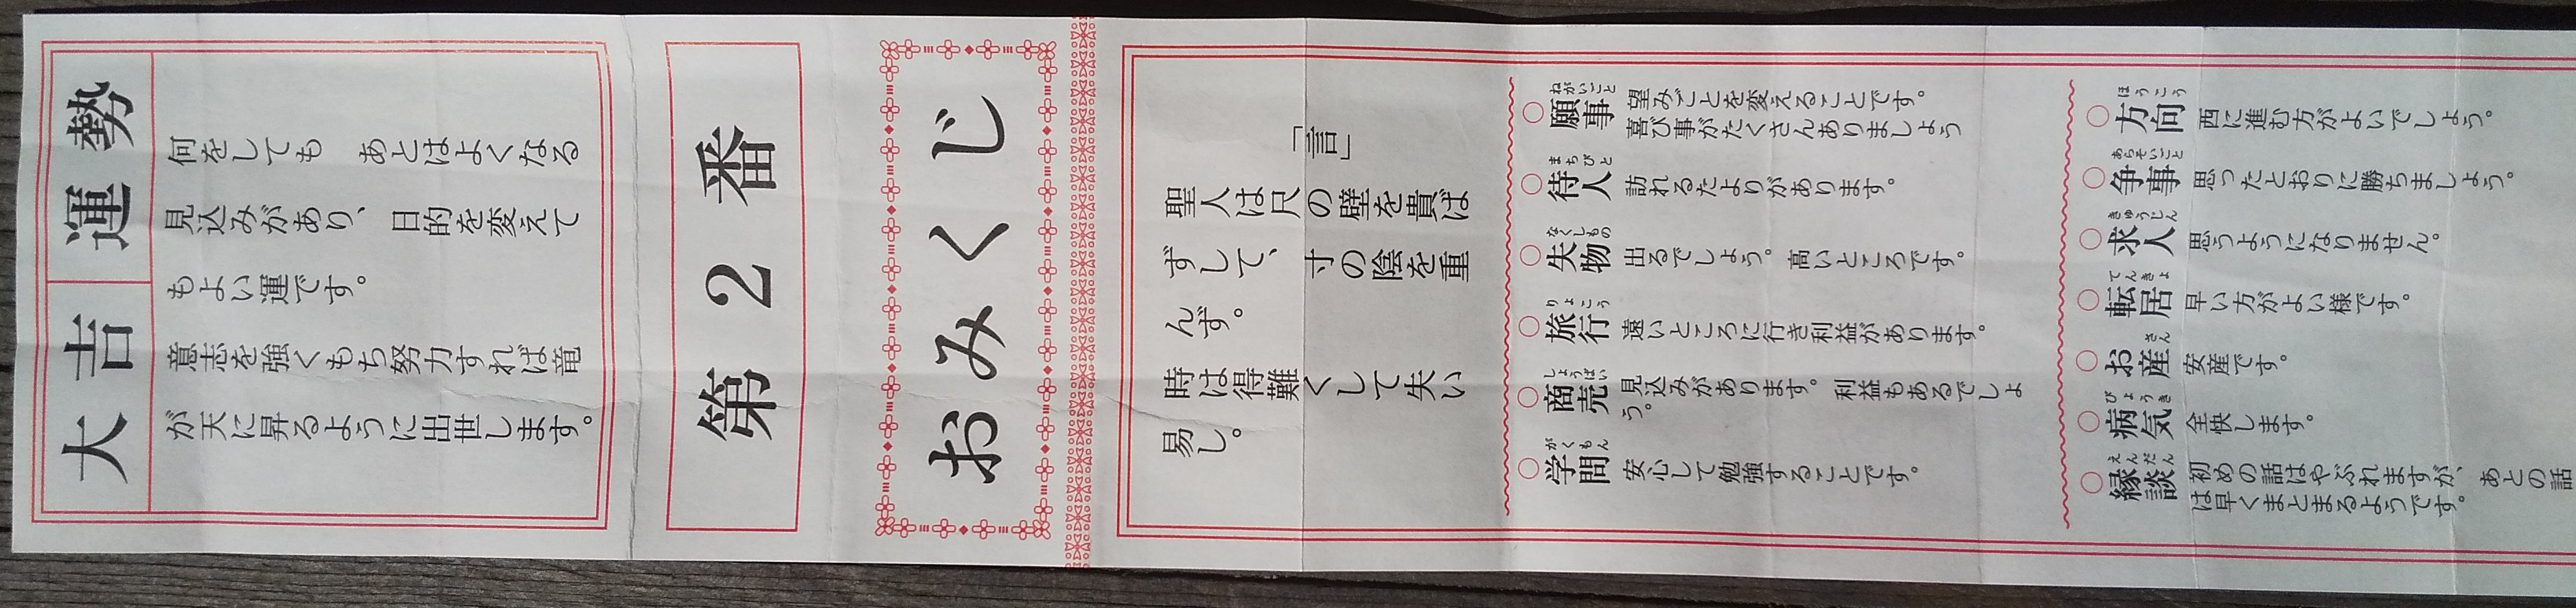 大吉 運勢
何をしても　あとはよくなる
見込みがあり、目的を変えて
もよい運です。
意志を強くもち努力すれば竜
が天に昇るように出世します。
第2番
おみくじ
「言」
聖人は尺の壁を貴ば
ずして、寸の陰を重
んず。
時は得難くして失い
易し。
ねがいごと
○願事 望みごとを変えることです。
喜び事がたくさんありましよう
まちびと
○待人 訪れるたよりがあります。
なくしもの
○失物 出るでしよう。高いところです。
りょこう
○旅行 遠いところに行き利益があります。
しょうばい
○商売 見込みがあります。利益もあるでしよ
う。
がくもん
○学問 安心して勉強することです。
ほうこう
○方向 西に進む方がよいでしよう。
あらそいごと
○争事 思ったとおりに勝ちましよう。
きゅうじん
○求人 思うようになりません。
てんきょ
○転居 早い方がよい様です。
さん
○お産 安産です。
びょうき
○病気 全快します。
えんだん
○縁談 初めの話はやぶれますが、あとの話
は早くまとまるようです。